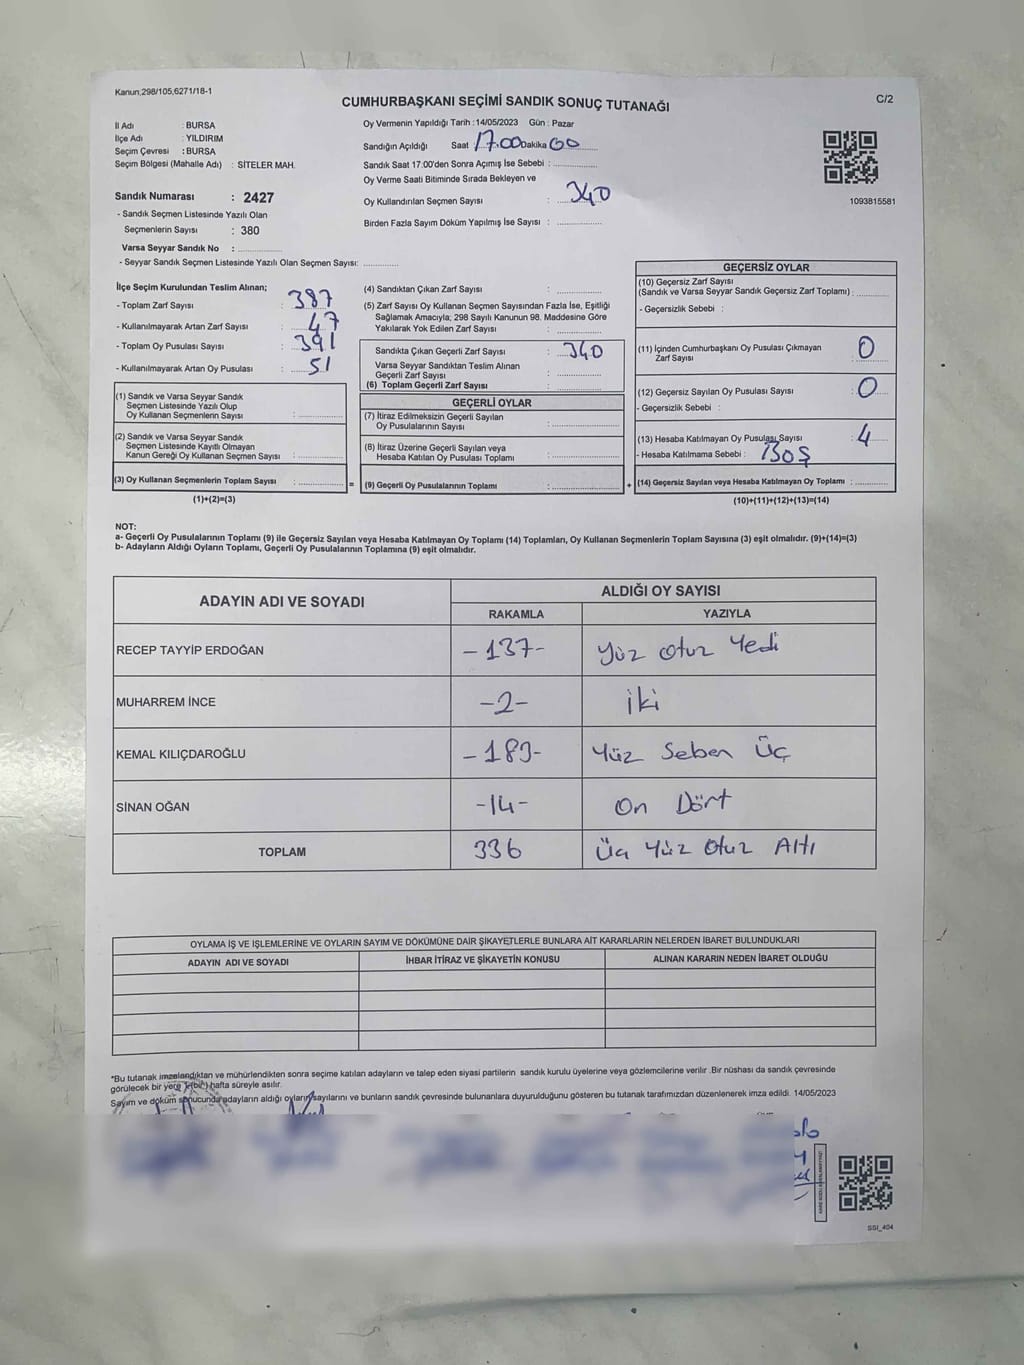 Kanun,298/105,6271/18-1
CUMHURBAŞKANI SEÇİMİ SANDIK SONUÇ TUTANAĞI
C/2
İl Adı : BURSA
İlçe Adı : YILDIRIM
Seçim Çevresi : BURSA
Seçim Bölgesi (Mahalle Adı) : SİTELER MAH.
Sandık Numarası : 2427
- Sandık Seçmen Listesinde Yazılı Olan
Seçmenlerin Sayısı : 380
Varsa Seyyar Sandık No :
- Seyyar Sandık Seçmen Listesinde Yazılı Olan Seçmen Sayısı:
Oy Vermenin Yapıldığı Tarih : 14/05/2023 Gün : Pazar
Sandığın Açıldığı Saat 17.00 Dakika 00
Sandık Saat 17.00'den Sonra Açımış İse Sebebi :
Oy Verme Saati Bitiminde Sırada Bekleyen ve
Oy Kullandırılan Seçmen Sayısı : 340
Birden Fazla Sayım Döküm Yapılmış İse Sayısı :
1093815581
İlçe Seçim Kurulundan Teslim Alınan;
- Toplam Zarf Sayısı : 387
- Kullanılmayarak Artan Zarf Sayısı : 47
- Toplam Oy Pusulası Sayısı : 391
- Kullanılmayarak Artan Oy Pusulası : 51
(1) Sandık ve Varsa Seyyar Sandık
Seçmen Listesinde Yazılı Olup
Oy Kullanan Seçmenlerin Sayısı :
(2) Sandık ve Varsa Seyyar Sandık
Seçmen Listesinde Kayıtlı Olmayan
Kanun Gereği Oy Kullanan Seçmen Sayısı :
(3) Oy Kullanan Seçmenlerin Toplam Sayısı :
(1)+(2)=(3)
(4) Sandıktan Çıkan Zarf Sayısı :
(5) Zarf Sayısı Oy Kullanan Seçmen Sayısından Fazla İse, Eşitliği
Sağlamak Amacıyla; 298 Sayılı Kanunun 98. Maddesine Göre
Yakılarak Yok Edilen Zarf Sayısı :
Sandıkta Çıkan Geçerli Zarf Sayısı : 340
Varsa Seyyar Sandıktan Teslim Alınan
Geçerli Zarf Sayısı :
(6) Toplam Geçerli Zarf Sayısı :
GEÇERLİ OYLAR
(7) İtiraz Edilmeksizin Geçerli Sayılan
Oy Pusulalarının Sayısı :
(8) İtiraz Üzerine Geçerli Sayılan veya
Hesaba Katılan Oy Pusulası Toplamı :
= (9) Geçerli Oy Pusulalarının Toplamı :
GEÇERSİZ OYLAR
(10) Geçersiz Zarf Sayısı
(Sandık ve Varsa Seyyar Sandık Geçersiz Zarf Toplamı) :
- Geçersizlik Sebebi :
(11) İçinden Cumhurbaşkanı Oy Pusulası Çıkmayan
Zarf Sayısı : 0
(12) Geçersiz Sayılan Oy Pusulası Sayısı : 0
- Geçersizlik Sebebi :
(13) Hesaba Katılmayan Oy Pusulası Sayısı : 4
- Hesaba Katılmama Sebebi : BOŞ
+ (14) Geçersiz Sayılan veya Hesaba Katılmayan Oy Toplamı :
(10)+(11)+(12)+(13)=(14)
NOT:
a- Geçerli Oy Pusulalarının Toplamı (9) ile Geçersiz Sayılan veya Hesaba Katılmayan Oy Toplamı (14) Toplamları, Oy Kullanan Seçmenlerin Toplam Sayısına (3) eşit olmalıdır. (9)+(14)=(3)
b- Adayların Aldığı Oyların Toplamı, Geçerli Oy Pusulalarının Toplamına (9) eşit olmalıdır.
ADAYIN ADI VE SOYADI
ALDIĞI OY SAYISI
RAKAMLA YAZIYLA
RECEP TAYYİP ERDOĞAN -137- Yüz Otuz Yedi
MUHARREM İNCE -2- İki
KEMAL KILIÇDAROĞLU -183- Yüz Seben Üç
SİNAN OĞAN -14- On Dört
TOPLAM 336 Üç Yüz Otuz Altı
OYLAMA İŞ VE İŞLEMLERİNE VE OYLARIN SAYIM VE DÖKÜMÜNE DAİR ŞİKAYETLERLE BUNLARA AİT KARARLARIN NELERDEN İBARET BULUNDUKLARI
ADAYIN ADI VE SOYADI İHBAR İTİRAZ VE ŞİKAYETİN KONUSU ALINAN KARARIN NEDEN İBARET OLDUĞU
*Bu tutanak imzalandıktan ve mühürlendikten sonra seçime katılan adayların ve talep eden siyasi partilerin sandık kurulu üyelerine veya gözlemcilerine verilir .Bir nüshası da sandık çevresinde
görülecek bir yere 1(bir) hafta süreyle asılır.
Sayım ve döküm sonucunda adayların aldığı oyların sayılarını ve bunların sandık çevresinde bulunanlara duyurulduğunu gösteren bu tutanak tarafımızdan düzenlenerek imza edildi. 14/05/2023
SSI_404